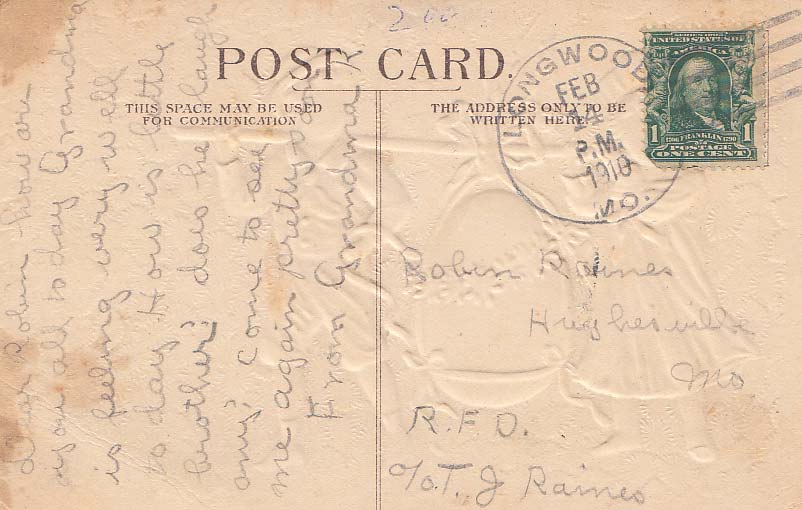 200
POST CARD.
THIS SPACE MAY BE USED
FOR COMMUNICATION
THE ADDRESS ONLY TO BE
WRITTEN HERE
LONGWOOD
FEB
14
P.M.
1910
MO.
SERIES 1902
UNITED STATES OF
AMERICA
1706 FRANKLIN 1790
POSTAGE
1 ONE CENT 1
Dear Robin how are
you all to day Grandma
is feeling very well
to day How is little
brother? does he laugh
any? Come to see
me again pretty soon
From Grandma R
Robin Raines
Hughesville
Mo
R.F.D.
c/o T. J Raines